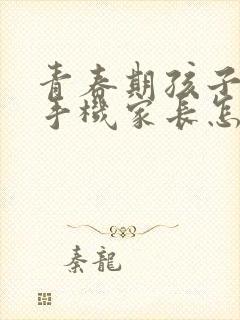 青春期孩子
手機家長怎
秦龍